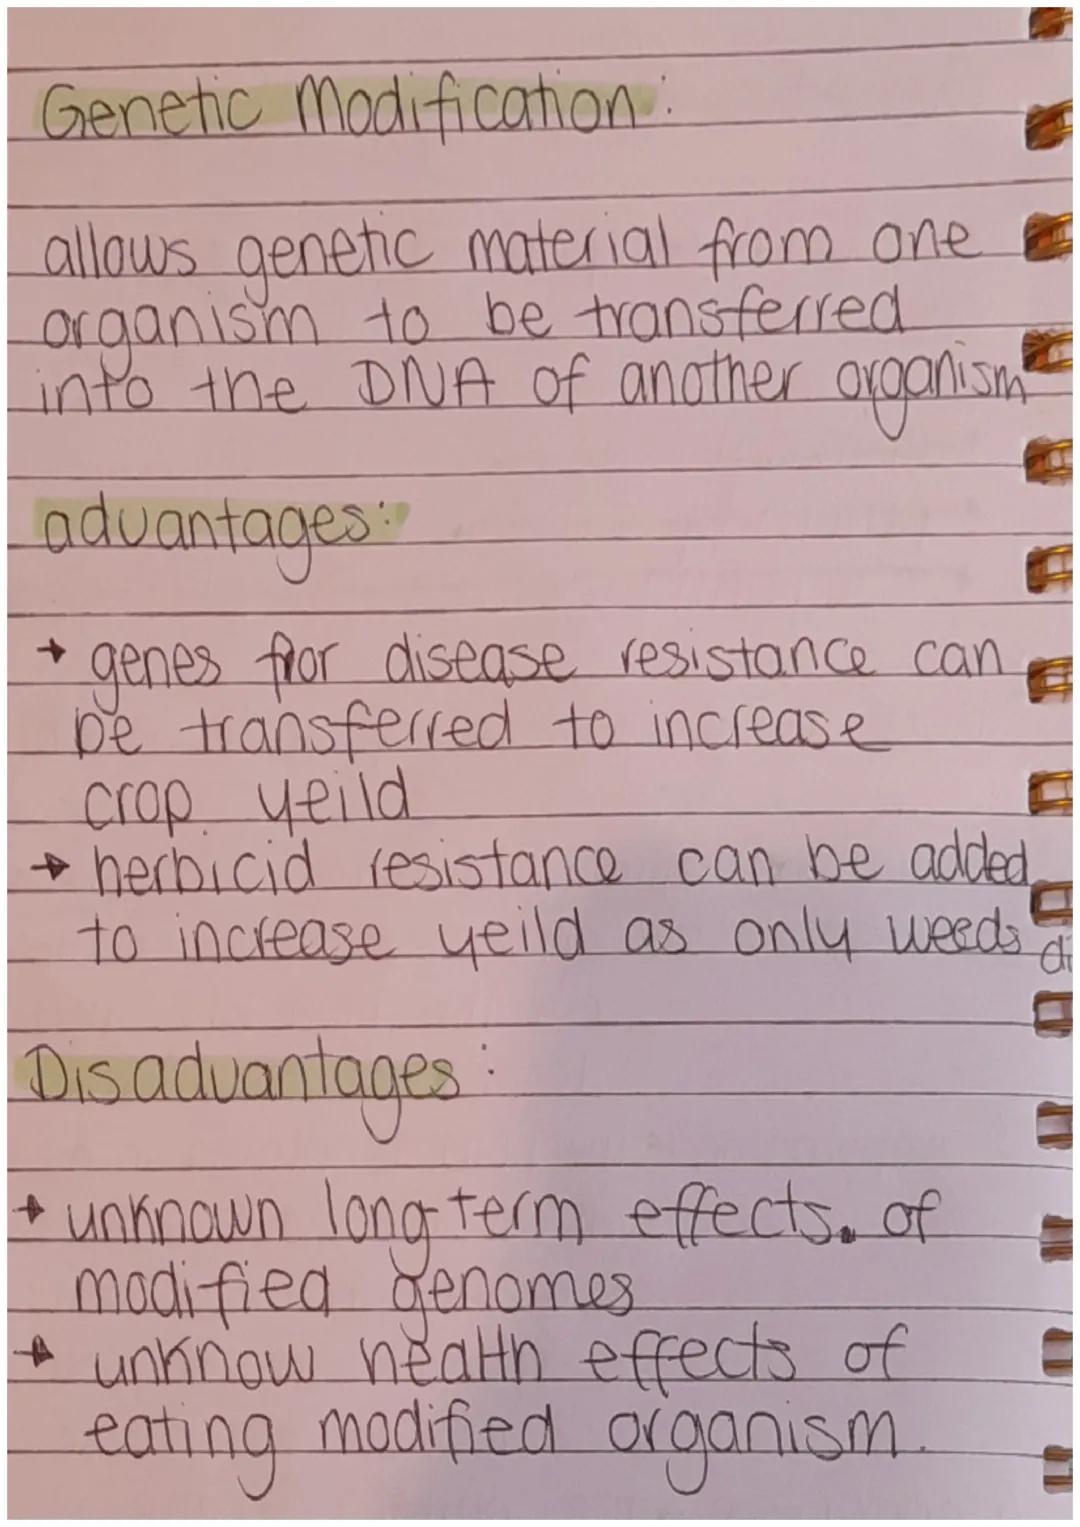 Genetic Modification:
allows genetic material from one
organism to be transferred
into the DNA of another organism
advantages:
→ genes for disease resistance can
be transferred to increase
crop yeild
→ herbicid resistance can be added
to increase yeild as only weeds
Disadvantages:
→ unknown long-term effects. of
modified genomes
→ unknow health effects of
eating modified organism.